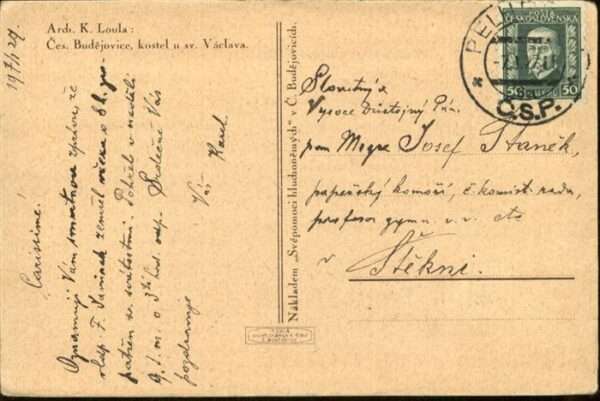 Arch. K. Loula:
Čes. Budějovice, kostel u sv. Václava.
19 7/1 29.
Carissime.
Oznamuji Vám smutnou zprávu, že
vldp. F. zemřel včera o 8 h.
svátostmi. Pohřeb v neděli
9. t. m. o 3 hod. odp. Srdečně Vás
pozdravuje
Váš Karel
Nákladem „Svépomoci hluchoněmých" v Č. Budějovicích.
POŠTA
ČESKOSLOVENSKÁ
50 50
Č.S.P.
Slovutný a
Vysoce Důstojný Pán,
pan Msgre Josef Staněk,
papežský komoří, č. konsist. rada,
professor gymn. v. v. etc
v Štěkni.